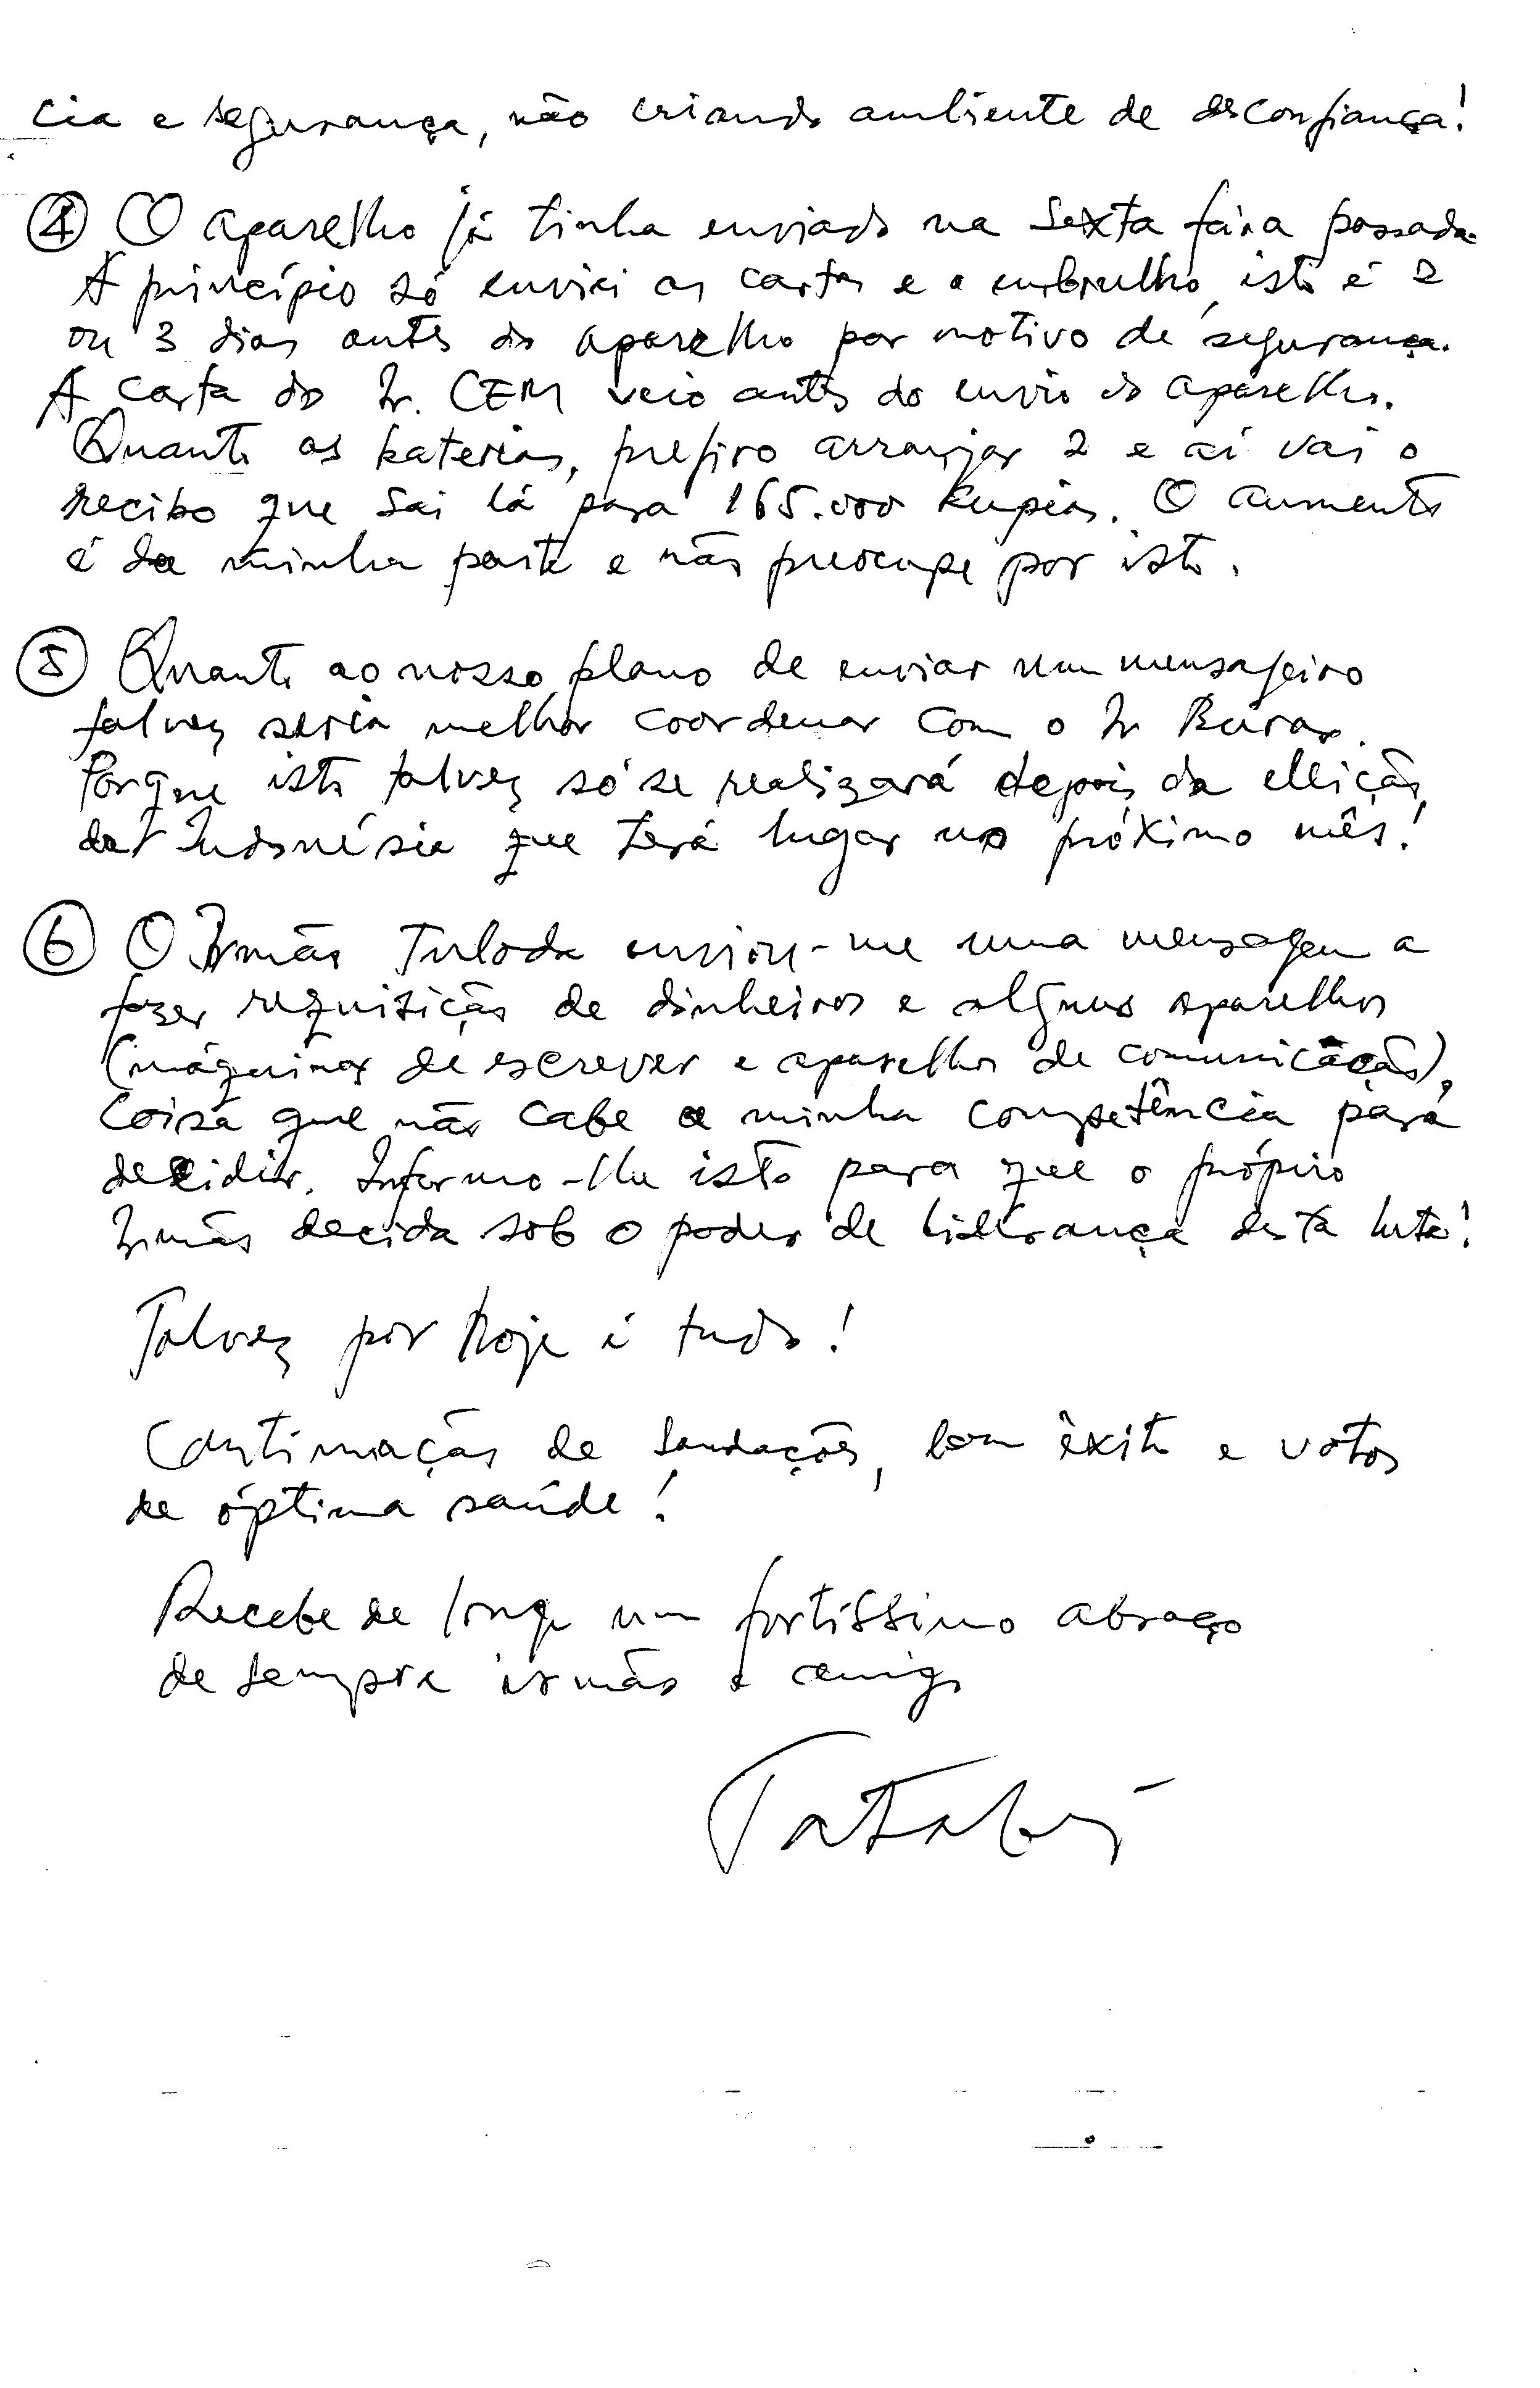 cia e segurança, não criando ambiente de desconfiança!
④ O aparelho já tinha enviado na Sexta faira passada.
A princípio só enviei as cartas e o embrulho, isto é 2
ou 3 dias antes do aparelho por motivo de segurança.
A carta do Ir. CEM veio antes do envio do aparelho.
Quanto as baterias, prefiro arranjar 2 e aí vai o
recibo que sai lá para 165.000 Rupias. O aumento
é da minha parte e não preocupe por isto.
⑤ Quanto ao nosso plano de enviar um mensageiro
talvez seria melhor coordenar com o Ir
Porque isto talvez só se realizará depois da elleição
da Indonésia que terá lugar no próximo mês!
⑥ O Irmão Tuloda enviou-me uma mensagem a
fazer requisição de dinheiros e alguns aparelhos
(máquinas de escrever e aparelho de comunicação),
Coisa que não cabe a minha competência para
decidir. Informo-lhe isto para que o própiro
Irmão decida sob o poder de liderança desta luta!
Talvez por hoje é tudo!
Continuação de Saudações, bom êxito e votos
de óptima saúde!
Recebe de longe um fortíssimo abraço
de sempre irmão e amigo